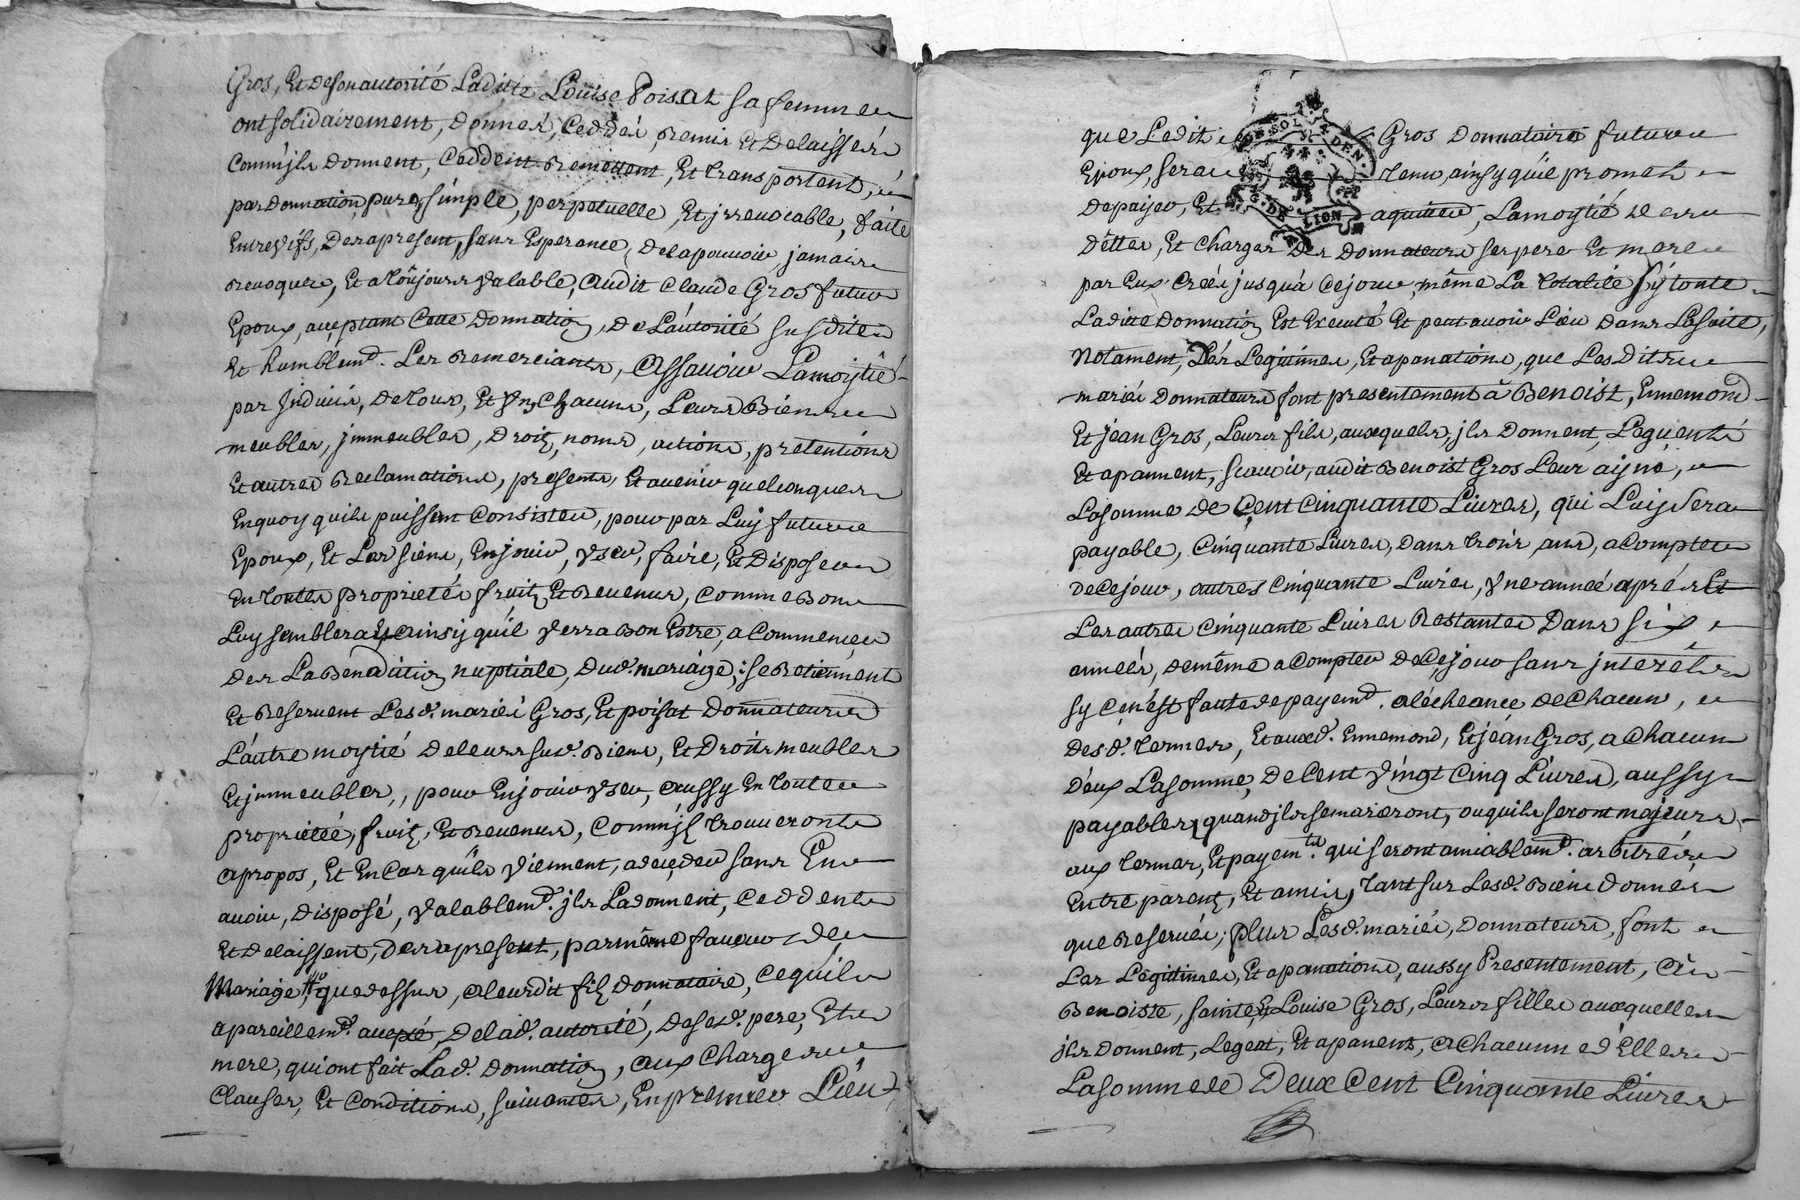 Gros, Et de son autorité Laditte Louise Poisat sa femme
ont solidairement, donnés, Ceddés, remis Et Delaissés
Comm'jls donnent, Ceddent remettent, Et transportent,
par donnation pure, simple, perpetuelle, Et jrrevocable, faite
Entre vifs, Des apresent, sans Esperance, de la pouvoir jamais
revoquer, Et a toûjours valable, audit Claude Gros futur
Epoux, aceptant Cette donnation, de L'autorité susdite
Et humblemt. Les remerciants, Assavoir Lamoytié
par Jndivis, de tous, Et Vn Chacuns, Leurs Biens
meubles, jmmeubles, droits, noms, actions, pretentions
Et autres reclamations, presents, Et avenir quelconques
En quoy quils puissent Consister, pour par Luy futur
Epoux, Et Les siens, En jouir, vser, faire, Et Disposer
En toutes proprietés fruits Et revenus, comme Bon
Luy semblera Et ainsy qu'il verra bon Estre, a Commencer
des La benediction nuptiale, dud. mariage; se retiennent
Et reservent Lesd. mariés Gros, Et poisat donnateurs
L'autre moytié de leurs susd. Biens, Et Droits meubles
Et jmmeubles, pour En jouir vser, aussy En toute
proprieté, fruits, Et revenus, Comm'jls trouveront
apropos, Et En Cas qu'ils viennent, a deceder sans En
avoir, disposé, valablemt. jls La donnent, Ceddent
Et delaissent, des apresent, par même faveur de
Mariage, que dessus, a leurdit fils donnataire, cequil
a pareillemt. acepté, de lad. autorité, de sesd. pere, Et
mere, qui ont fait Lad. donnation, aux Charges
Clauses, Et Conditions, suivantes, En premier Lieu
que Ledit Gros donnataire futur
Epoux, sera tenu, ainsy qu'il promet
de payer, Et aquitter, Lamoytié des
dettes, Et Charges des donnateurs ses pere Et mere
par Eux Créés jusqu'à Cejour, même La totalité sy toute
Laditte donnation Est Executé Et peut avoir Lieu dans La suite,
Notament, Les Legitimes, Et apanations, que Lesdits
mariés donnateurs font presentement à Benoist, Ennemond
Et jean Gros, Leurs fils, auxquels, jls donnent, Leguent
Et apannent, scavoir, audit Benoist Gros Leur aisné,
La somme de Cent Cinquante Livres, qui Luy sera
payable, Cinquante Livres, dans trois ans, a compter
de Cejour, autres Cinquante Livres, Vne année aprés Et
Les autres Cinquante Livres Restantes Dans six
années, de même a compter de Cejour sans jnterêts
sy Ce n'est faute de payemt. a l'écheance de Chacun,
desd. termes, Et auxd. Ennemond, Et jéan Gros, a Chacun
d'eux La somme, de Cent Vingt Cinq Livres, aussy
payables, quand jls se marieront, ou quils seront majeurs
aux termes, Et payemts. qui seront amiablemt. arbitrés
Entre parents, Et amis, tant sur Lesd. Biens donnés
que reservés; plus Lesd. mariés, donnateurs, font
Les Legitimes, Et apanations, aussy Presentement, à
Benoiste, Sainte, Et Louise Gros, Leurs filles auxquelles
jls donnent, Legent, Et apanent, a Chacunne d'Elles
La somme de Deux Cent Cinquante Livres